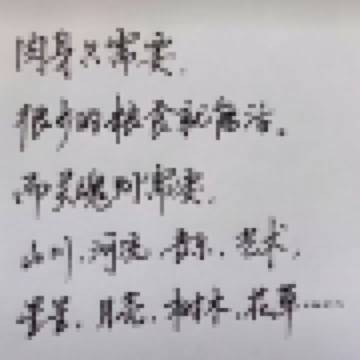 肉身只需要，
很少的粮食就能活。
而灵魂则需要，
山川、河流、音乐、艺术，
星星、月亮、树木、花草……